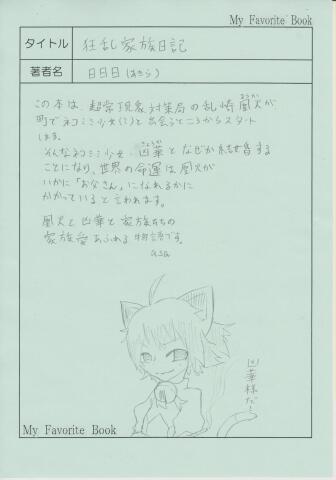 My Favorite Book
タイトル 狂乱家族日記
著者名 日日日(あきら)
この本は、超常現象対策局の乱崎凰火が
町でネコミミ少女(?)と出会うところからスタート
します。
そんなネコミミ少女・凶華となぜか結婚する
ことになり、世界の命運は凰火が
いかに「お父さん」になれるかに
かかっていると言われます。
凰火と凶華と家族たちの
家族愛あふれる物語です。
asa
凶華様だー
My Favorite Book